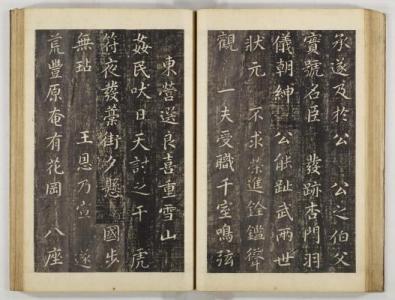 承遂及於公　公之伯父
實號名臣　發跡杏門羽
儀朝紳　公能趾武兩世
狀元　不求榮進銓鑑
觀　一夫受職千室鳴弦
東營選良喜重雪山
姦民吠日天討之干虎
符夜發藁街夕懸　國步
無玷　王恩乃　遂
荒豐原奄有花岡　八座